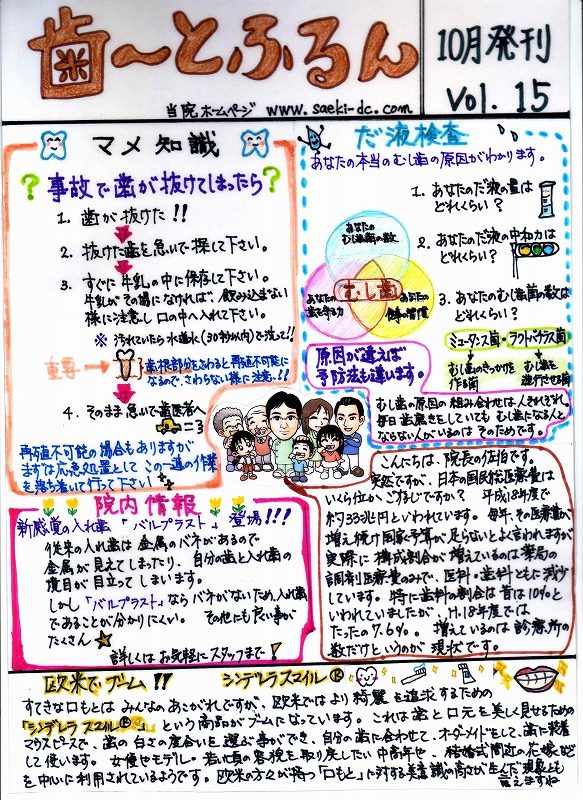 歯〜とふるん
10月発刊
vol. 15
当院ホームページ www.saeki-dc.com
マメ知識
?事故で歯が抜けてしまったら?
1. 歯が抜けた!!
2. 抜けた歯を急いで探して下さい。
3. すぐに牛乳の中に保存して下さい。
牛乳がその場になければ、飲み込まない
様に注意し口の中へ入れて下さい。
※汚れていたら水道水(30秒以内)で洗って!!
重要→
歯根部分をさわると再殖不可能に
なるので、さわらない様に注意!!
4. そのまま急いで歯医者へ
再殖不可能の場合もありますが
まずは応急処置としてこの一連の作業
を落ち着いて行って下さい
だ液検査
あなたの本当のむし歯の原因がわかります。
あなたの
むし歯菌の数
あなたの
歯を守る力
むし歯
あなたの
食事の習慣
1. あなたのだ液の量は
どれくらい?
2. あなたのだ液の中和力は
どれくらい?
3. あなたのむし歯菌の数は
どれくらい?
ミュータンス菌・ラクトバチラス菌
むし歯のきっかけを
作る菌
むし歯を
進行させる菌
原因が違えば
予防法も違います。
むし歯の原因の組み合わせは人それぞれ。
毎日歯磨きをしていてもむし歯になる人と
ならない人がいるのはそのためです。
院内情報
新感覚の入れ歯「バルプラスト」登場!!!
従来の入れ歯は金属のバネがあるので
金属が見えてしまったり、自分の歯と入れ歯の
境目が目立ってしまいます。
しかし「バルプラスト」ならバネがないため、入れ歯
であることが分かりにくい。その他にも良い事が
たくさん
詳しくはお気軽にスタッフまで!
こんにちは、院長の佐伯です。
突然ですが、日本の国民総医療費は
いくら位かご存じですか? 平成18年度で
約33兆円といわれています。毎年、その医療費が
増え続け国家予算が足らないとよく言われますが
実際に構成割合が増えているのは薬局の
調剤医療費のみで、医科・歯科ともに減少
しています。特に歯科の割合は昔は10%と
いわれていましたが、H.18年度では
たったの7.6%。増えているのは診療所の
数だけというのが現状です。
欧米でブーム!! シンデレラスマイル®
すてきな口もとはみんなのあこがれですが、欧米ではより綺麗を追求するための
「シンデレラスマイル®」という商品がブームになっています。これは歯と口元を美しく見せるための
マウスピースで、歯の白さの度合いを選ぶ事ができ、自分の歯に合わせて、オーダーメイドをして、歯に装着
して使います。女優やモデル、若い頃の容貌を取り戻したい中高年や、結婚式間近の花嫁など
を中心に利用されているようです。欧米の方々が持つ「口もと」に対する美意識の高さが生んだ現象とも
言えますね